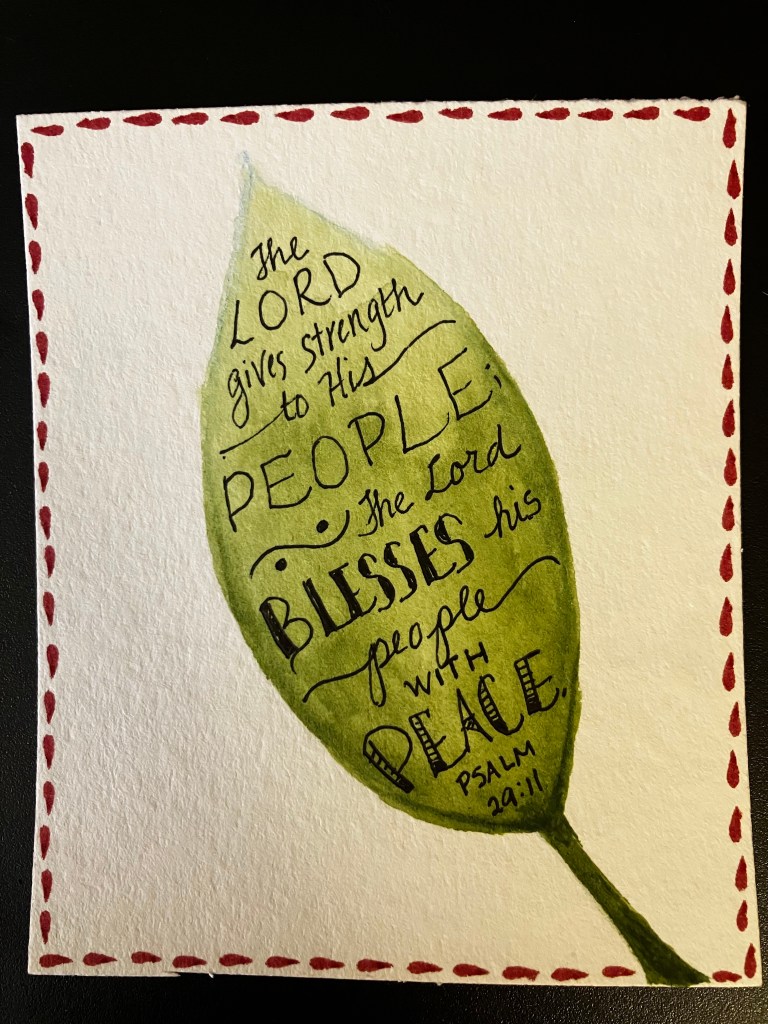 The
LORD
gives strength
to His
PEOPLE;
The Lord
BLESSES his
people
WITH
PEACE.
PSALM
29:11